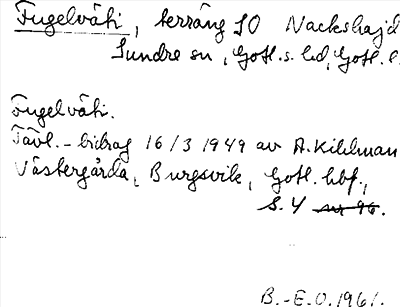 Fugelväti, terräng SO Nackshajd
Sundre sn, Gotl. s. hd, Gotl. l.
Fugelväti.
Tävl.-bidrag 16/3 1949 av A. Kihlman
Västergårda, Burgsvik, Gotl. hbf.,
S. 4
B.-E.O. 1961.